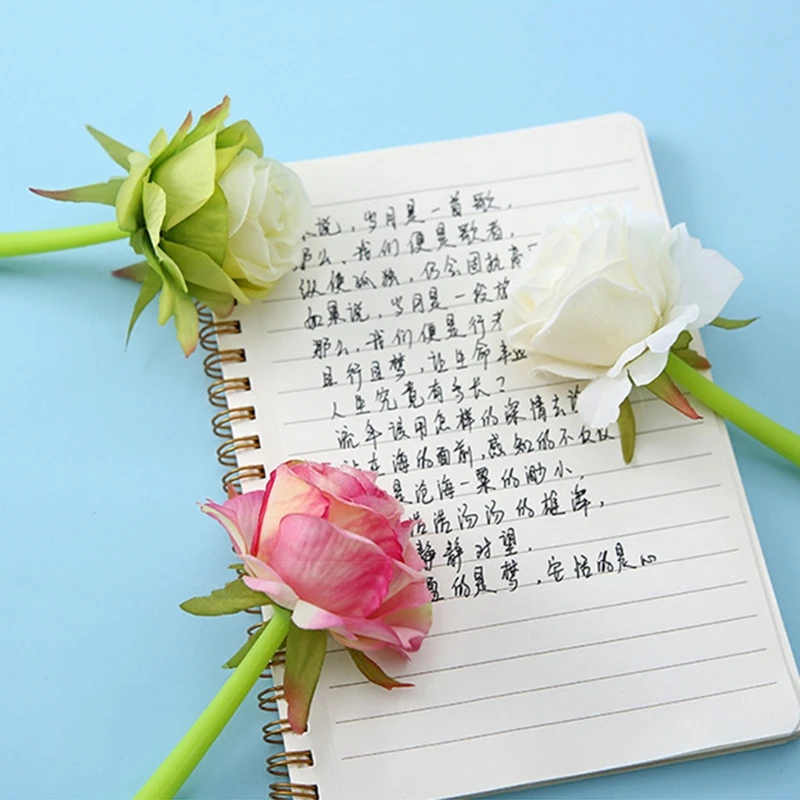 说，岁月是一首歌，
那么，我们便是歌者，
纵使孤独，仍会因执着
如果说，岁月是一段旅
那么，我们便是行者
且行且梦，让生命丰盈
人生究竟有多长？
流年该用怎样的深情去
站在海的面前，感知的不仅仅
是沧海一粟的渺小，
浩浩汤汤的雄浑，
静静对望，
的是梦，安恬的是心